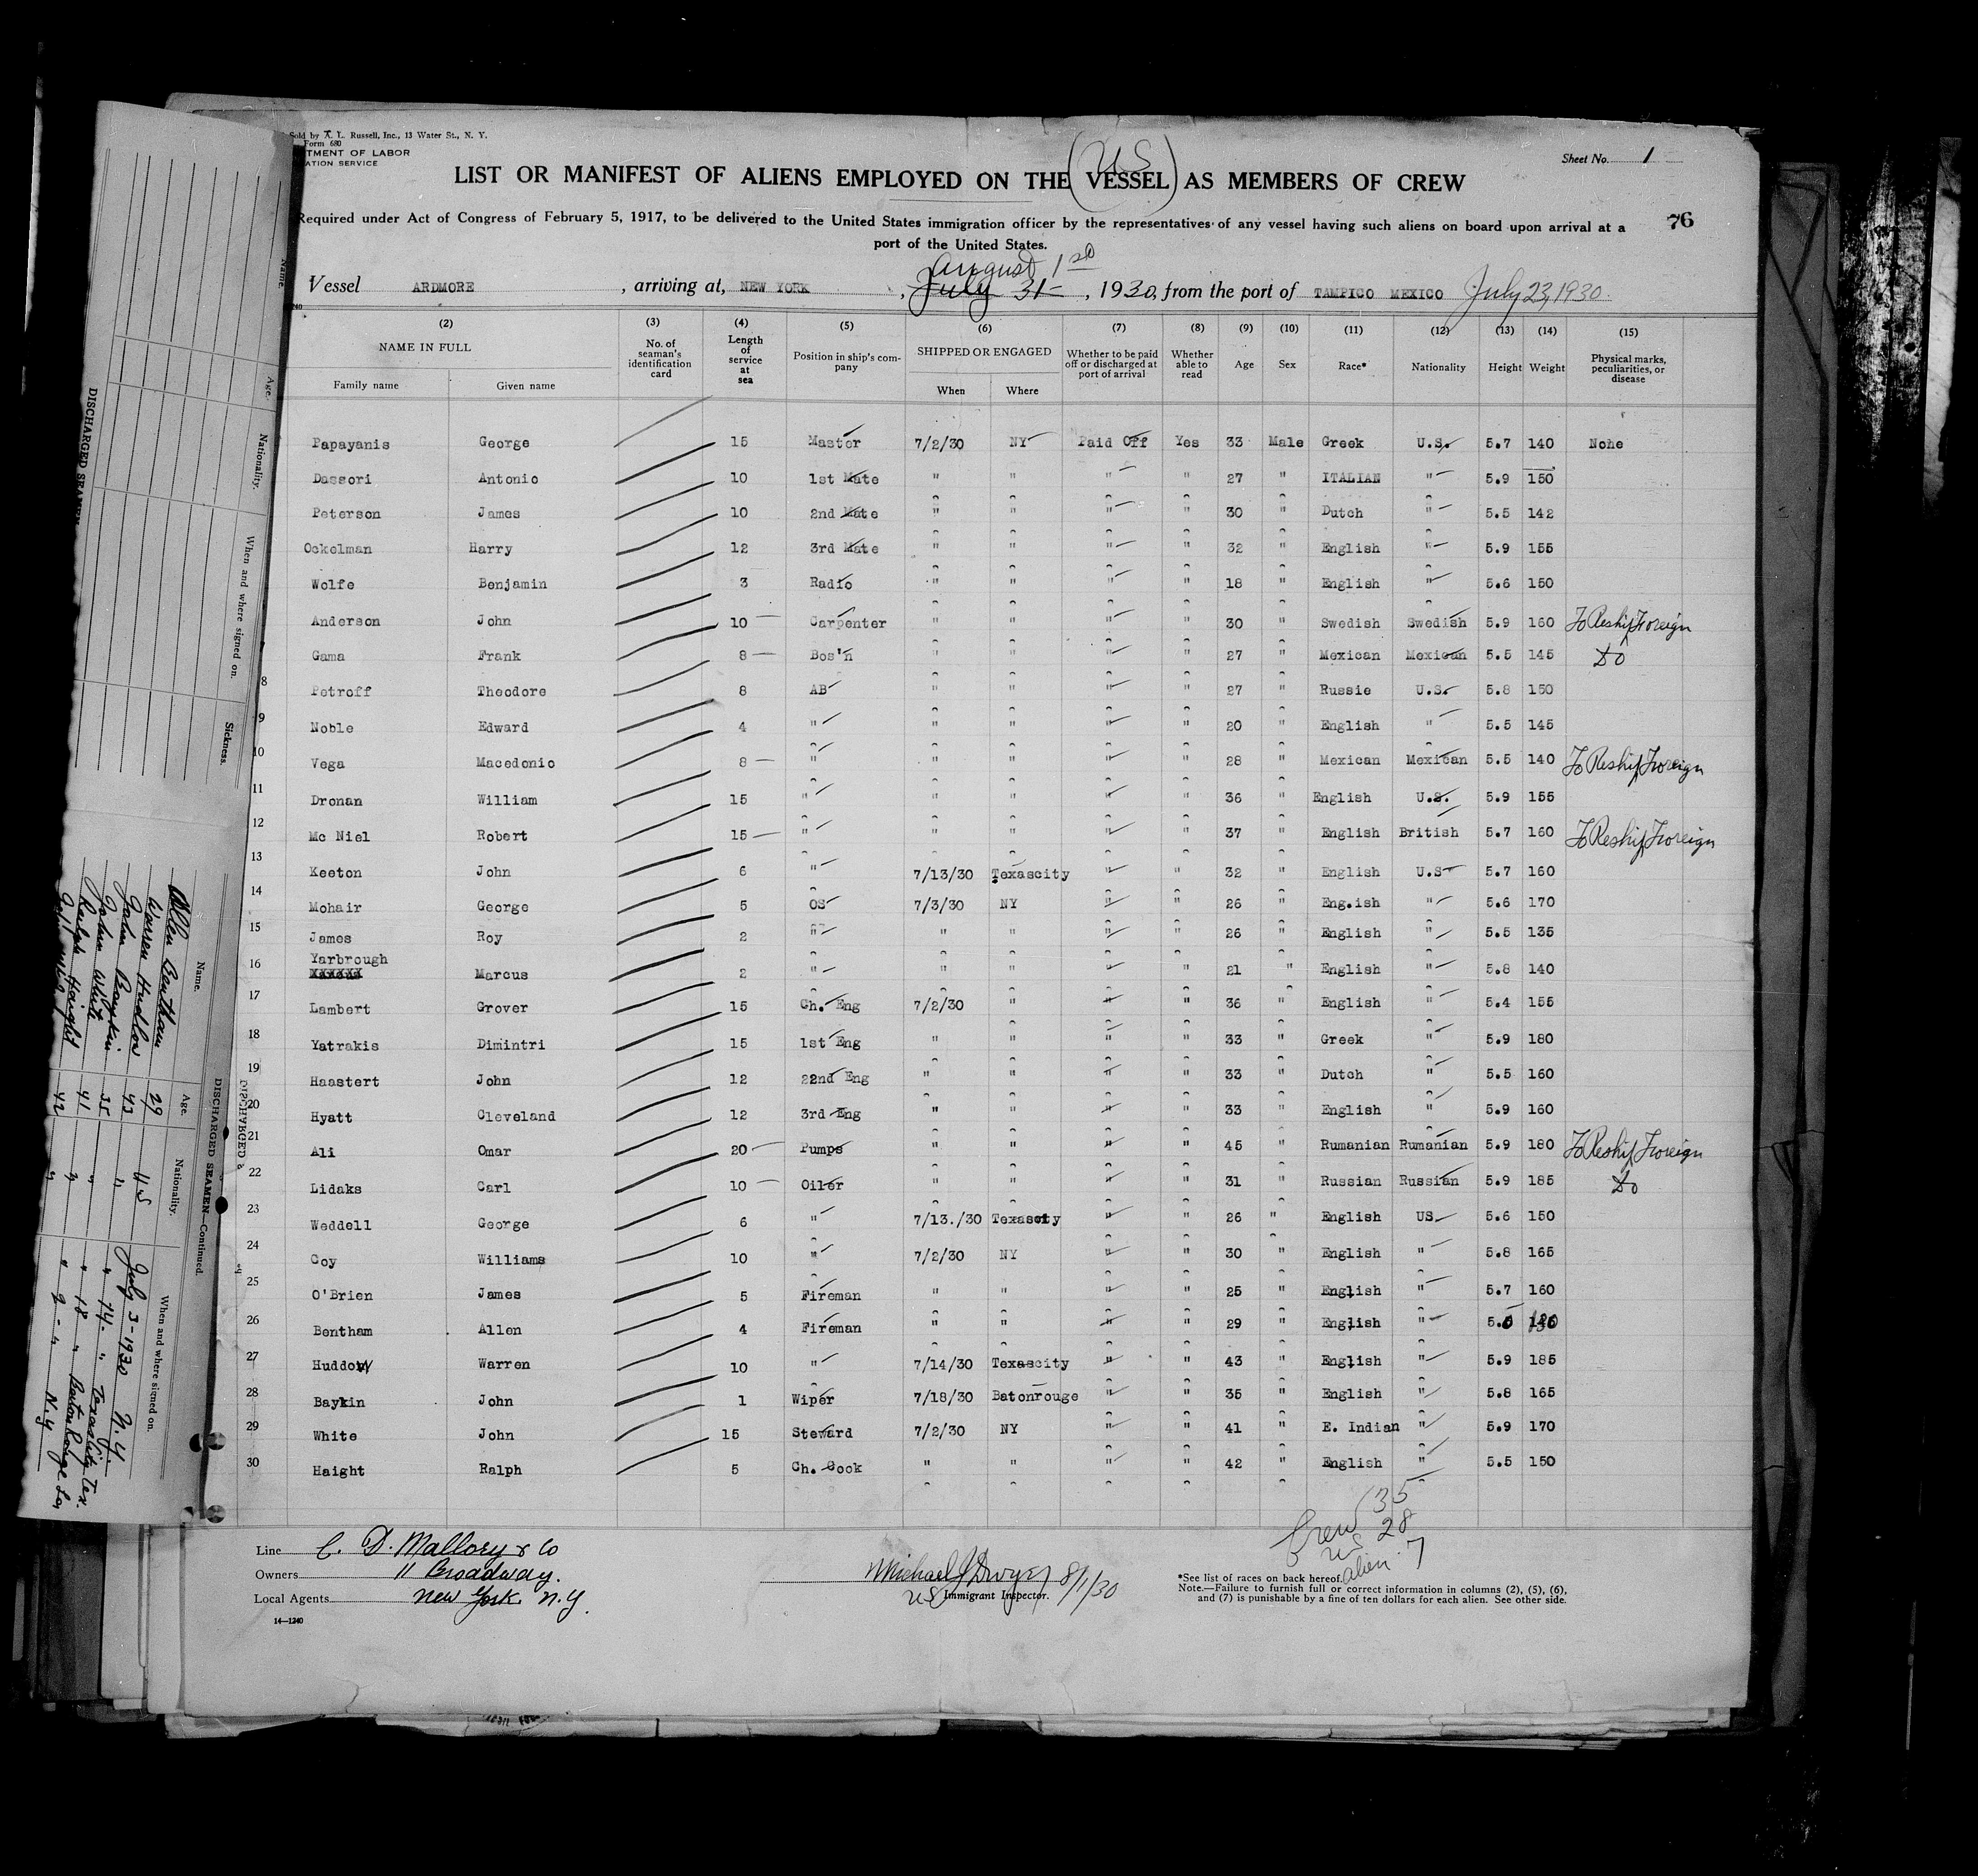 Sold by A. L. Russell, Inc., 13 Water St., N. Y.
Form 680
TMENT OF LABOR
ATION SERVICE
Sheet No. 1
(US)
LIST OR MANIFEST OF ALIENS EMPLOYED ON THE VESSEL AS MEMBERS OF CREW
Required under Act of Congress of February 5, 1917, to be delivered to the United States immigration officer by the representatives of any vessel having such aliens on board upon arrival at a
port of the United States.
76
August 1st
Vessel ARDMORE, arriving at, NEW YORK, July 31, 1930, from the port of TAMPICO MEXICO July 23, 1930.
(2) (3) (4) (5) (6) (7) (8) (9) (10) (11) (12) (13) (14) (15)
NAME IN FULL Family name Given name No. of seaman's identification card Length of service at sea Position in ship's company SHIPPED OR ENGAGED When Where Whether to be paid off or discharged at port of arrival Whether able to read Age Sex Race* Nationality Height Weight Physical marks, peculiarities, or disease
Papayanis George 15 Master 7/2/30 NY Paid Off Yes 33 Male Greek U.S. 5.7 140 None
Dassori Antonio 10 1st Mate " " " " 27 " ITALIAN " 5.9 150
Peterson James 10 2nd Mate " " " " 30 " Dutch " 5.5 142
Ockelman Harry 12 3rd Mate " " " " 32 " English " 5.9 155
Wolfe Benjamin 3 Radio " " " " 18 " English " 5.6 150
Anderson John 10 Carpenter " " " " 30 " Swedish Swedish 5.9 160 To Reship Foreign
Gama Frank 8 Bos'n " " " " 27 " Mexican Mexican 5.5 145 Do
8 Petroff Theodore 8 AB " " " " 27 " Russie U.S. 5.8 150
9 Noble Edward 4 " " " " " 20 " English " 5.5 145
10 Vega Macedonio 8 " " " " " 28 " Mexican Mexican 5.5 140 To Reship Foreign
11 Dronan William 15 " " " " " 36 " English U.S. 5.9 155
12 Mc Niel Robert 15 " " " " " 37 " English British 5.7 160 To Reship Foreign
13 Keeton John 6 " 7/13/30 Texascity " " 32 " English U.S 5.7 160
14 Mohair George 5 OS 7/3/30 NY " " 26 " Eng.ish " 5.6 170
15 James Roy 2 " " " " " 26 " English " 5.5 135
Yarbrough
16 XXXXXX Marcus 2 " " " " " 21 " English " 5.8 140
17 Lambert Grover 15 Ch. Eng 7/2/30 " " " 36 " English " 5.4 155
18 Yatrakis Dimintri 15 1st Eng " " " " 33 " Greek " 5.9 180
19 Haastert John 12 22nd Eng " " " " 33 " Dutch " 5.5 160
20 Hyatt Cleveland 12 3rd Eng " " " " 33 " English " 5.9 160
21 Ali Omar 20 Pumps " " " " 45 " Rumanian Rumanian 5.9 180 To Reship Foreign
22 Lidaks Carl 10 Oiler " " " " 31 " Russian Russian 5.9 185 Do
23 Weddell George 6 " 7/13./30 Texascty " " 26 " English US 5.6 150
24 Coy Williams 10 " 7/2/30 NY " " 30 " English " 5.8 165
25 O'Brien James 5 Fireman " " " " 25 " English " 5.7 160
26 Bentham Allen 4 Fireman " " " " 29 " English "
27 Huddow Warren 10 " 7/14/30 Texascity " " 43 " English " 5.9 185
28 Baykin John 1 Wiper 7/18/30 Batonrouge " " 35 " English " 5.8 165
29 White John 15 Steward 7/2/30 NY " " 41 " E. Indian " 5.9 170
30 Haight Ralph 5 Ch. Cook " " " " 42 " English " 5.5 150
Crew 35
US 28
alien 7
Line C. D. Mallory & Co
Owners 11 Broadway.
Local Agents New York. N.Y.
14—1240
Michael J Dwyer 8/1/30
US Immigrant Inspector.
*See list of races on back hereof.
Note.—Failure to furnish full or correct information in columns (2), (5), (6),
and (7) is punishable by a fine of ten dollars for each alien. See other side.
DISCHARGED SEAMEN
Name. Age. Nationality. When and where signed on. Sickness.
DISCHARGED SEAMEN—Continued.
Name. Age. Nationality. When and where signed on.
Allen Bentham 29 US July 3-1930 N.Y.
Warren Hudlow 43 " " 14 " Texas City Tex.
John Baykin 35 " " 18 " Baton Rouge La
John White 41 " " 2 - " N.Y
Ralph Haight 42 "